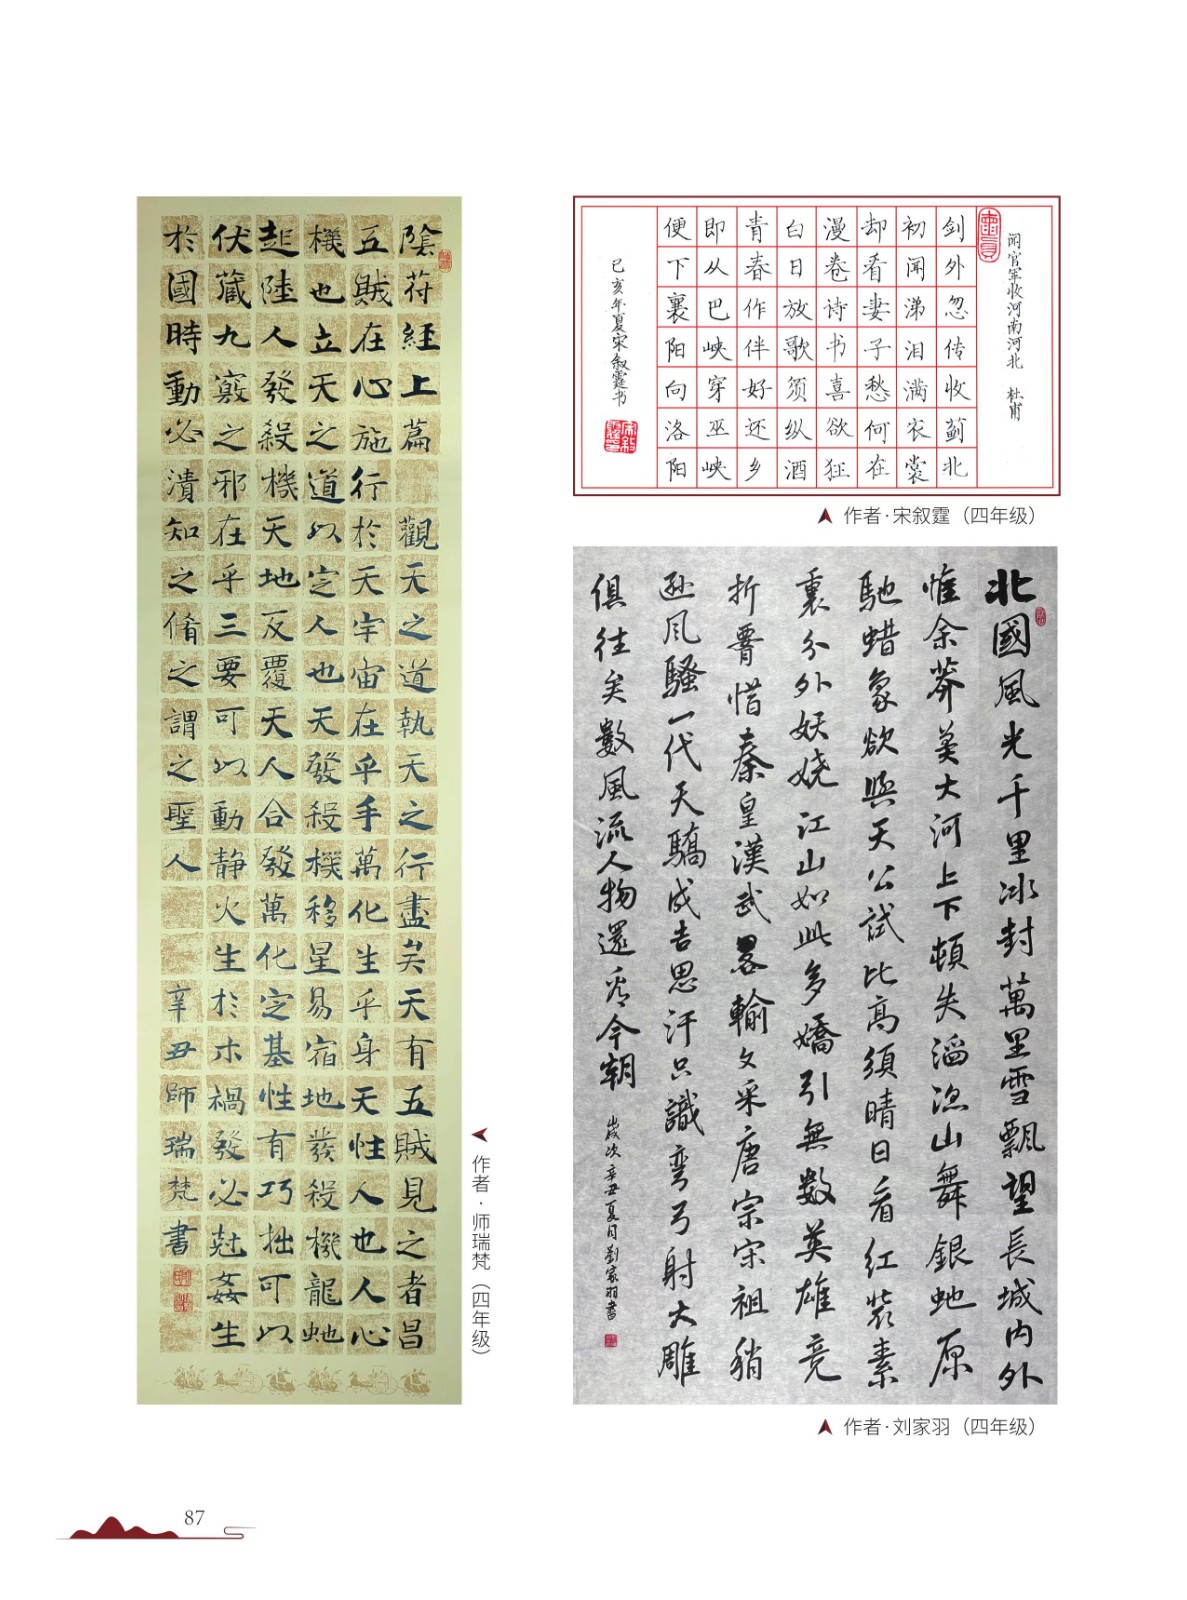 陰符經上篇 觀天之道執天之行盡矣天有五賊見之者昌
五賊在心施行於天宇宙在乎手萬化生乎身天性人也人心
機也立天之道以定人也天發殺機移星易宿地發殺機龍虵
起陸人發殺機天地反覆天人合發萬化定基性有巧拙可以
伏藏九竅之邪在乎三要可以動静火生於木禍發必尅姦生
於國時動必潰知之脩之謂之聖人
辛丑師瑞梵書
作者·师瑞梵（四年级）
闻官军收河南河北 杜甫
剑外忽传收蓟北
初闻涕泪满衣裳
却看妻子愁何在
漫卷诗书喜欲狂
白日放歌须纵酒
青春作伴好还乡
即从巴峡穿巫峡
便下襄阳向洛阳
己亥年夏宋叙霆书
作者·宋叙霆（四年级）
北國風光千里冰封萬里雪飄望長城内外
惟余莽莽大河上下頓失滔滔山舞銀虵原
馳蜡象欲與天公試比高須晴日看紅裝素
裹分外妖娆江山如此多嬌引無數英雄竞
折腰惜秦皇漢武畧輸文采唐宗宋祖稍
逊风騷一代天驕成吉思汗只識彎弓射大雕
俱往矣數風流人物還看今朝
歲次辛丑夏月劉家羽書
作者·刘家羽（四年级）
87